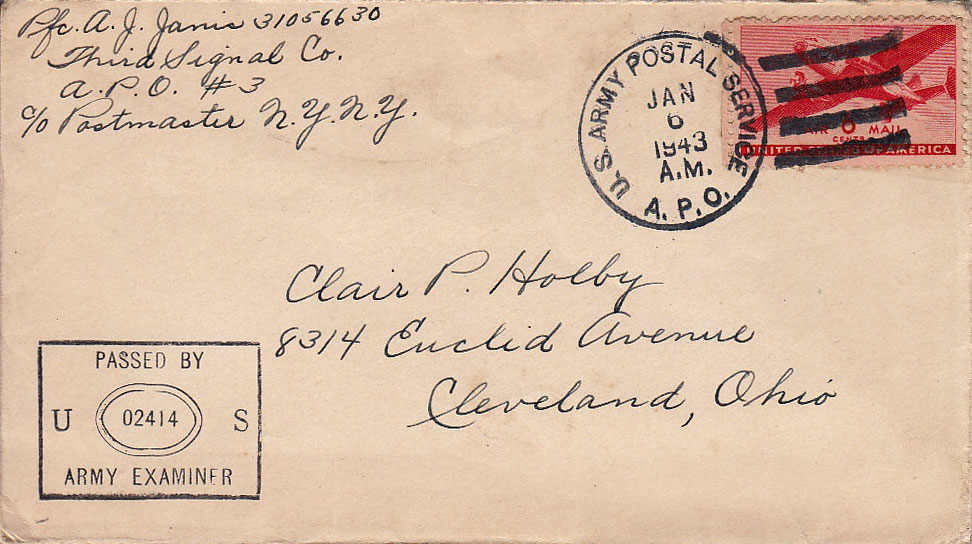 Pfc. A. J. Janis 31056630
Third Signal Co.
A.P.O. #3
c/o Postmaster N.Y.N.Y.
U.S. ARMY POSTAL SERVICE
JAN
6
1943
A.M.
A.P.O.
AIR 6 MAIL
CENTS
UNITED STATES OF AMERICA
Clair P. Holby
8314 Euclid Avenue
Cleveland, Ohio
PASSED BY
U 02414 S
ARMY EXAMINER